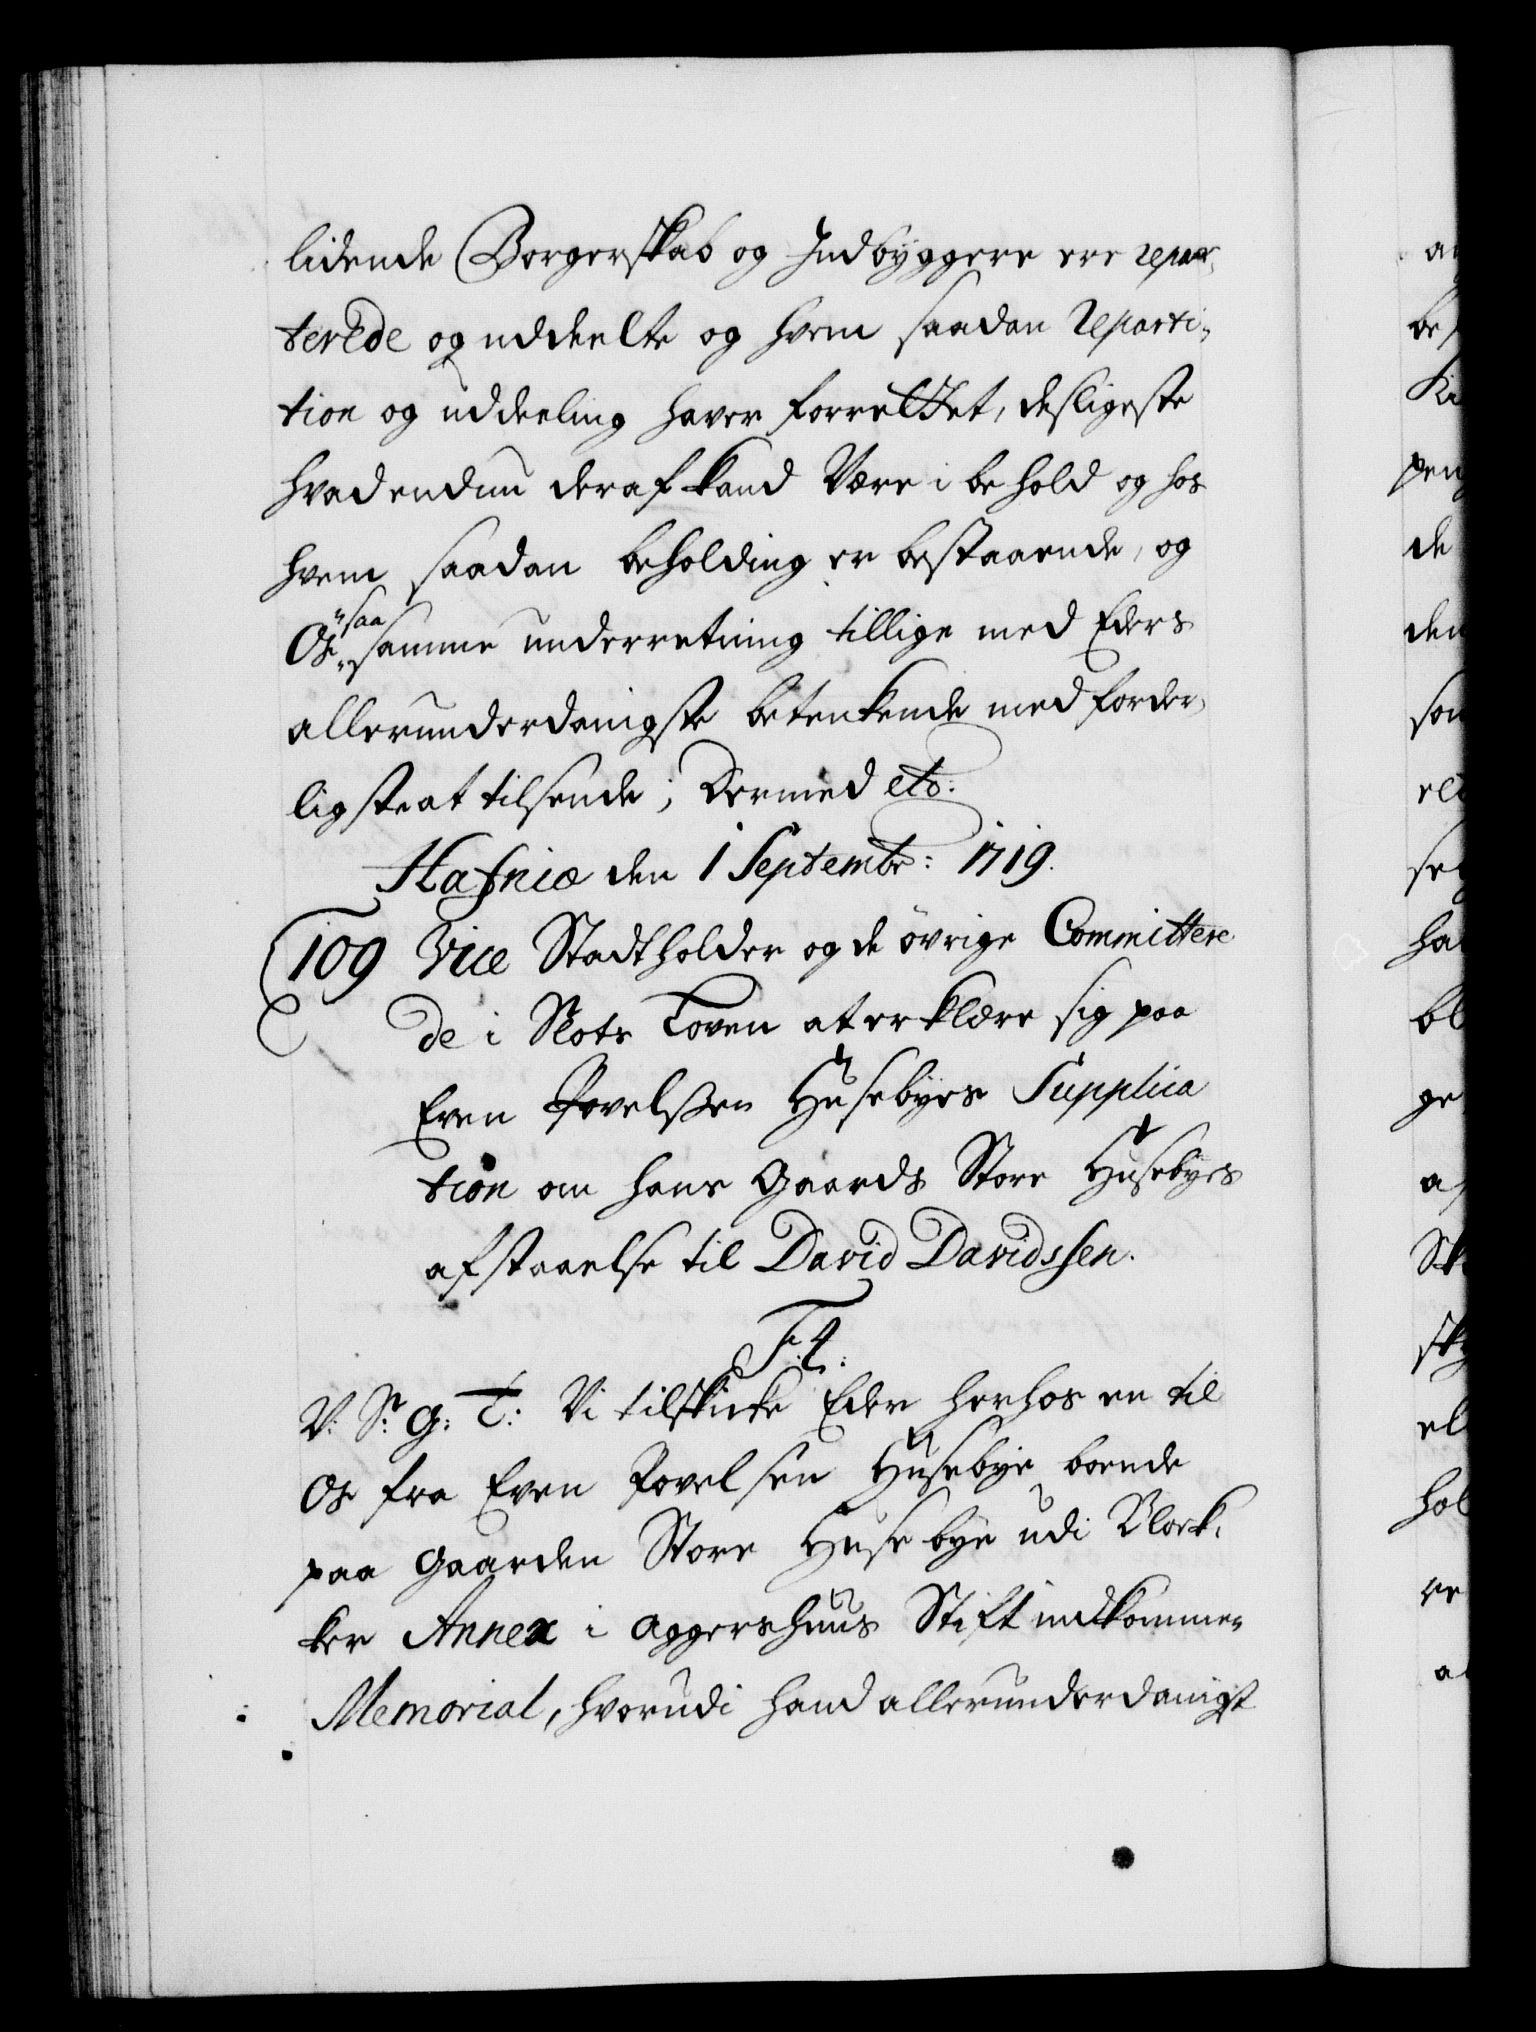 lidende Borgerskab og Indbyggere ere repar-
terede og uddeelte og hvem saadan Reparti-
tion og uddeeling haver forrettet, desligeste
hvad endnu deraf kand Være i behold og hos
hvem saadan beholding er bestaaende, og
Os "saa" samme underretning tillige med Eders
allerunderdanigste betenkende med forder-
ligste at tilsende; Dermed etc:
Hafniæ den 1 Septembr: 1719.
109 Vice Stadtholder og de øvrige Committere
de i Slots Loven at erklære sig paa
Even Povelßen Husebyes Supplica
tion om hans Gaards Store Husebyes
afstaaelse til David Davidssen.
F: 4.
V: Sr: G: T: Vi tilskicke Eder herhos en til
Os fra Even Povelsen Husebye boende
paa Gaarden Store Husebye udi
ker Annex i Aggershuus Stift indkommen
Memorial, hvorudi hand allerunderdanigst